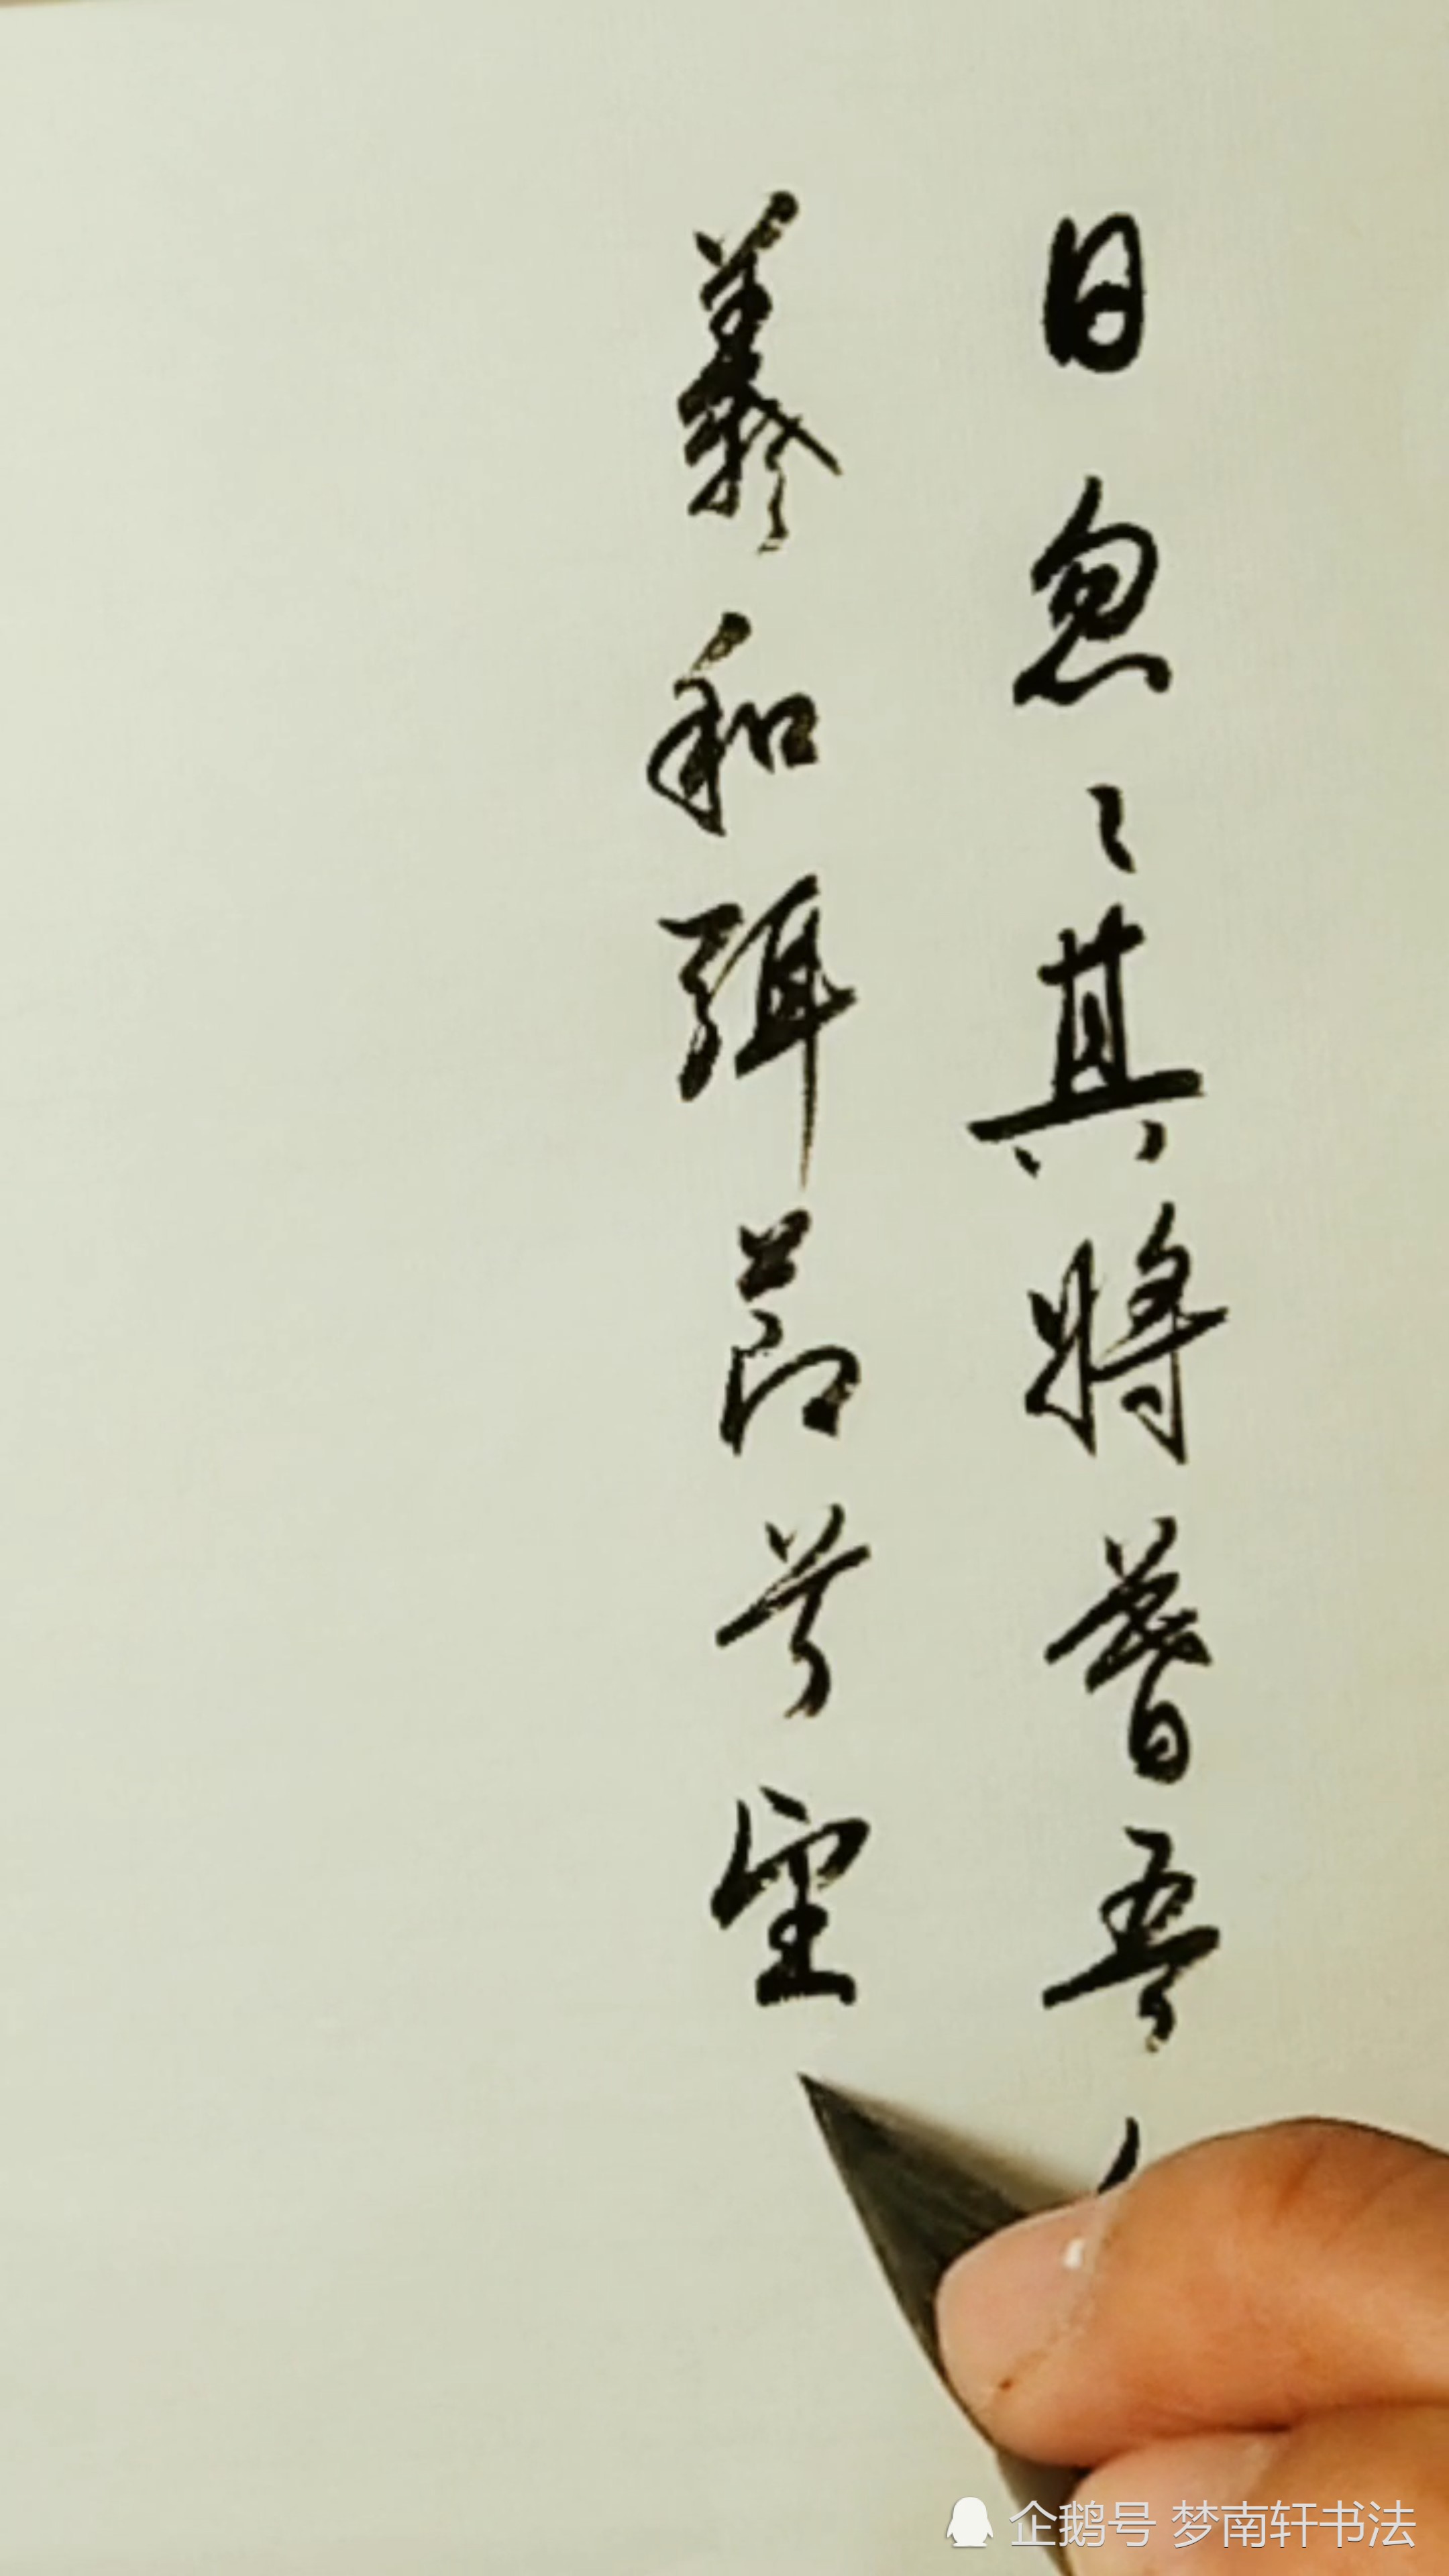 日忽〻其將暮吾
羲和弭莭兮望
企鹅号 梦南轩书法